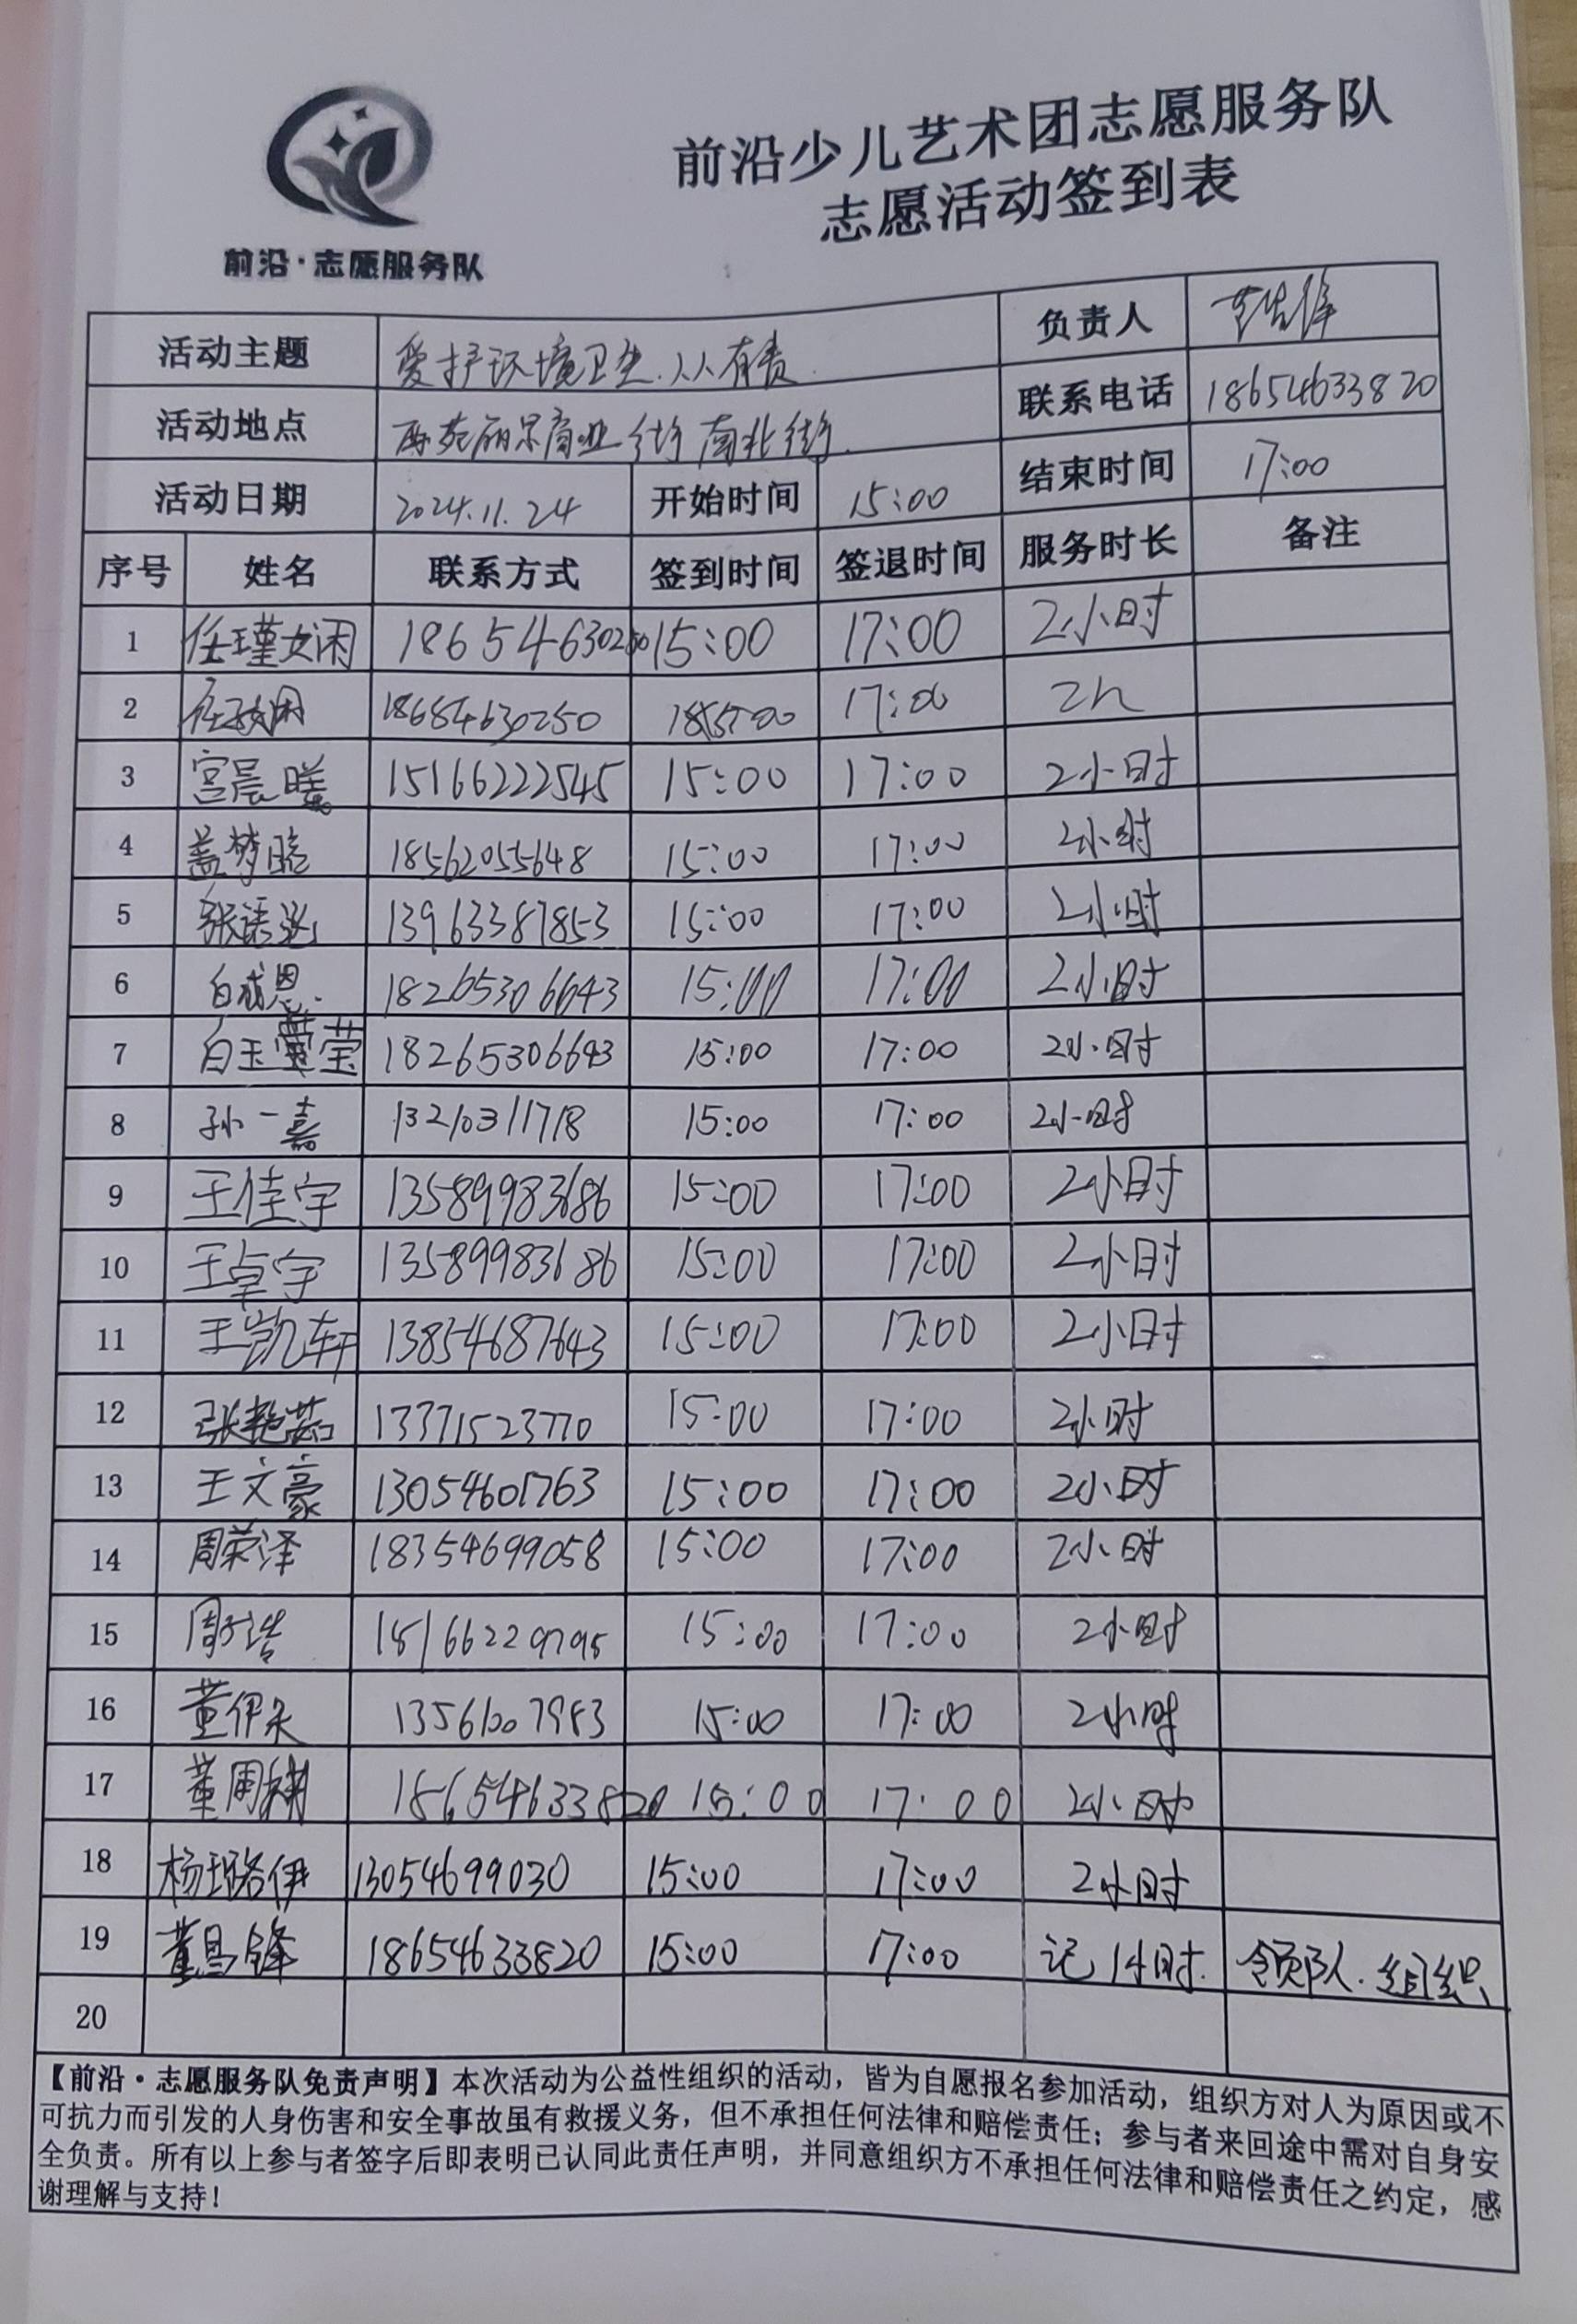 前沿少儿艺术团志愿服务队
志愿活动签到表
前沿·志愿服务队
活动主题 爱护环境卫生.人人有责. 负责人
活动地点 商业街南北街. 联系电话 18654633820
活动日期 2024.11.24 开始时间 15:00 结束时间 17:00
序号 姓名 联系方式 签到时间 签退时间 服务时长 备注
1 任瑾女闲 18654630250 15:00 17:00 2小时
2 18654630250 17:00 2h
3 宫晨曦 15166222545 15:00 17:00 2小时
4 盖梦晗 18562055648 15:00 17:00 2小时
5 张语 13963387853 15:00 17:00 2小时
6 白成恩. 18265306643 15:00 17:00 2小时
7 白玉莹 18265306643 15:00 17:00 2小时
8 孙一嘉 13210311718 15:00 17:00 2小时
9 王佳宇 13589983686 15:00 17:00 2小时
10 王卓宇 13589983686 15:00 17:00 2小时
11 王凯轩 13854687643 15:00 17:00 2小时
12 张艳茹 13371523770 15:00 17:00 2小时
13 王文豪 13054601763 15:00 17:00 2小时
14 周荣泽 18354699058 15:00 17:00 2小时
15 周子浩 15166229795 15:00 17:00 2小时
16 董伊 15:00 17:00 2小时
17 董周祺 18654633820 15:00 17:00 2小时
18 杨璐伊 13054699030 15:00 17:00 2小时
19 董昌锋 18654633820 15:00 17:00 记1小时. 领队.组织
20
【前沿·志愿服务队免责声明】本次活动为公益性组织的活动，皆为自愿报名参加活动，组织方对人为原因或不
可抗力而引发的人身伤害和安全事故虽有救援义务，但不承担任何法律和赔偿责任；参与者来回途中需对自身安
全负责。所有以上参与者签字后即表明已认同此责任声明，并同意组织方不承担任何法律和赔偿责任之约定，感
谢理解与支持！